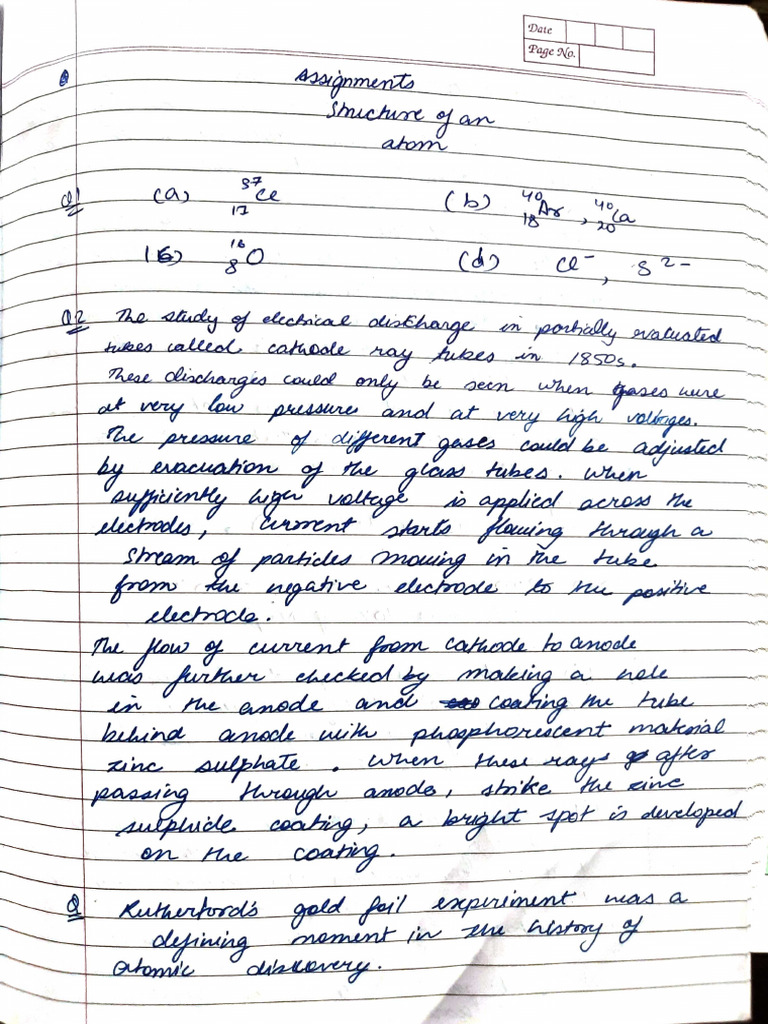 Date
Page No.
Assignments
Structure of an
atom
Q1 (a) ³⁷₁₇Cl (b) ⁴⁰₁₈Ar , ⁴⁰₂₀Ca
(c) ¹⁶₈O (d) Cl⁻, S²⁻
Q2 The study of electrical discharge in partially evaluated
tubes called cathode ray tubes in 1850s.
These discharges could only be seen when gases were
at very low pressure and at very high voltages.
The pressure of different gases could be adjusted
by evacuation of the glass tubes. When
sufficiently high voltage is applied across the
electrodes, current starts flowing through a
stream of particles moving in the tube
from the negative electrode to the positive
electrode.
The flow of current from cathode to anode
was further checked by making a hole
in the anode and coating the tube
behind anode with phosphorescent material
zinc sulphate. When these rays after
passing through anode, strike the zinc
sulphide coating, a bright spot is developed
on the coating.
Q Rutherford's gold foil experiment was a
defining moment in the history of
atomic discovery.